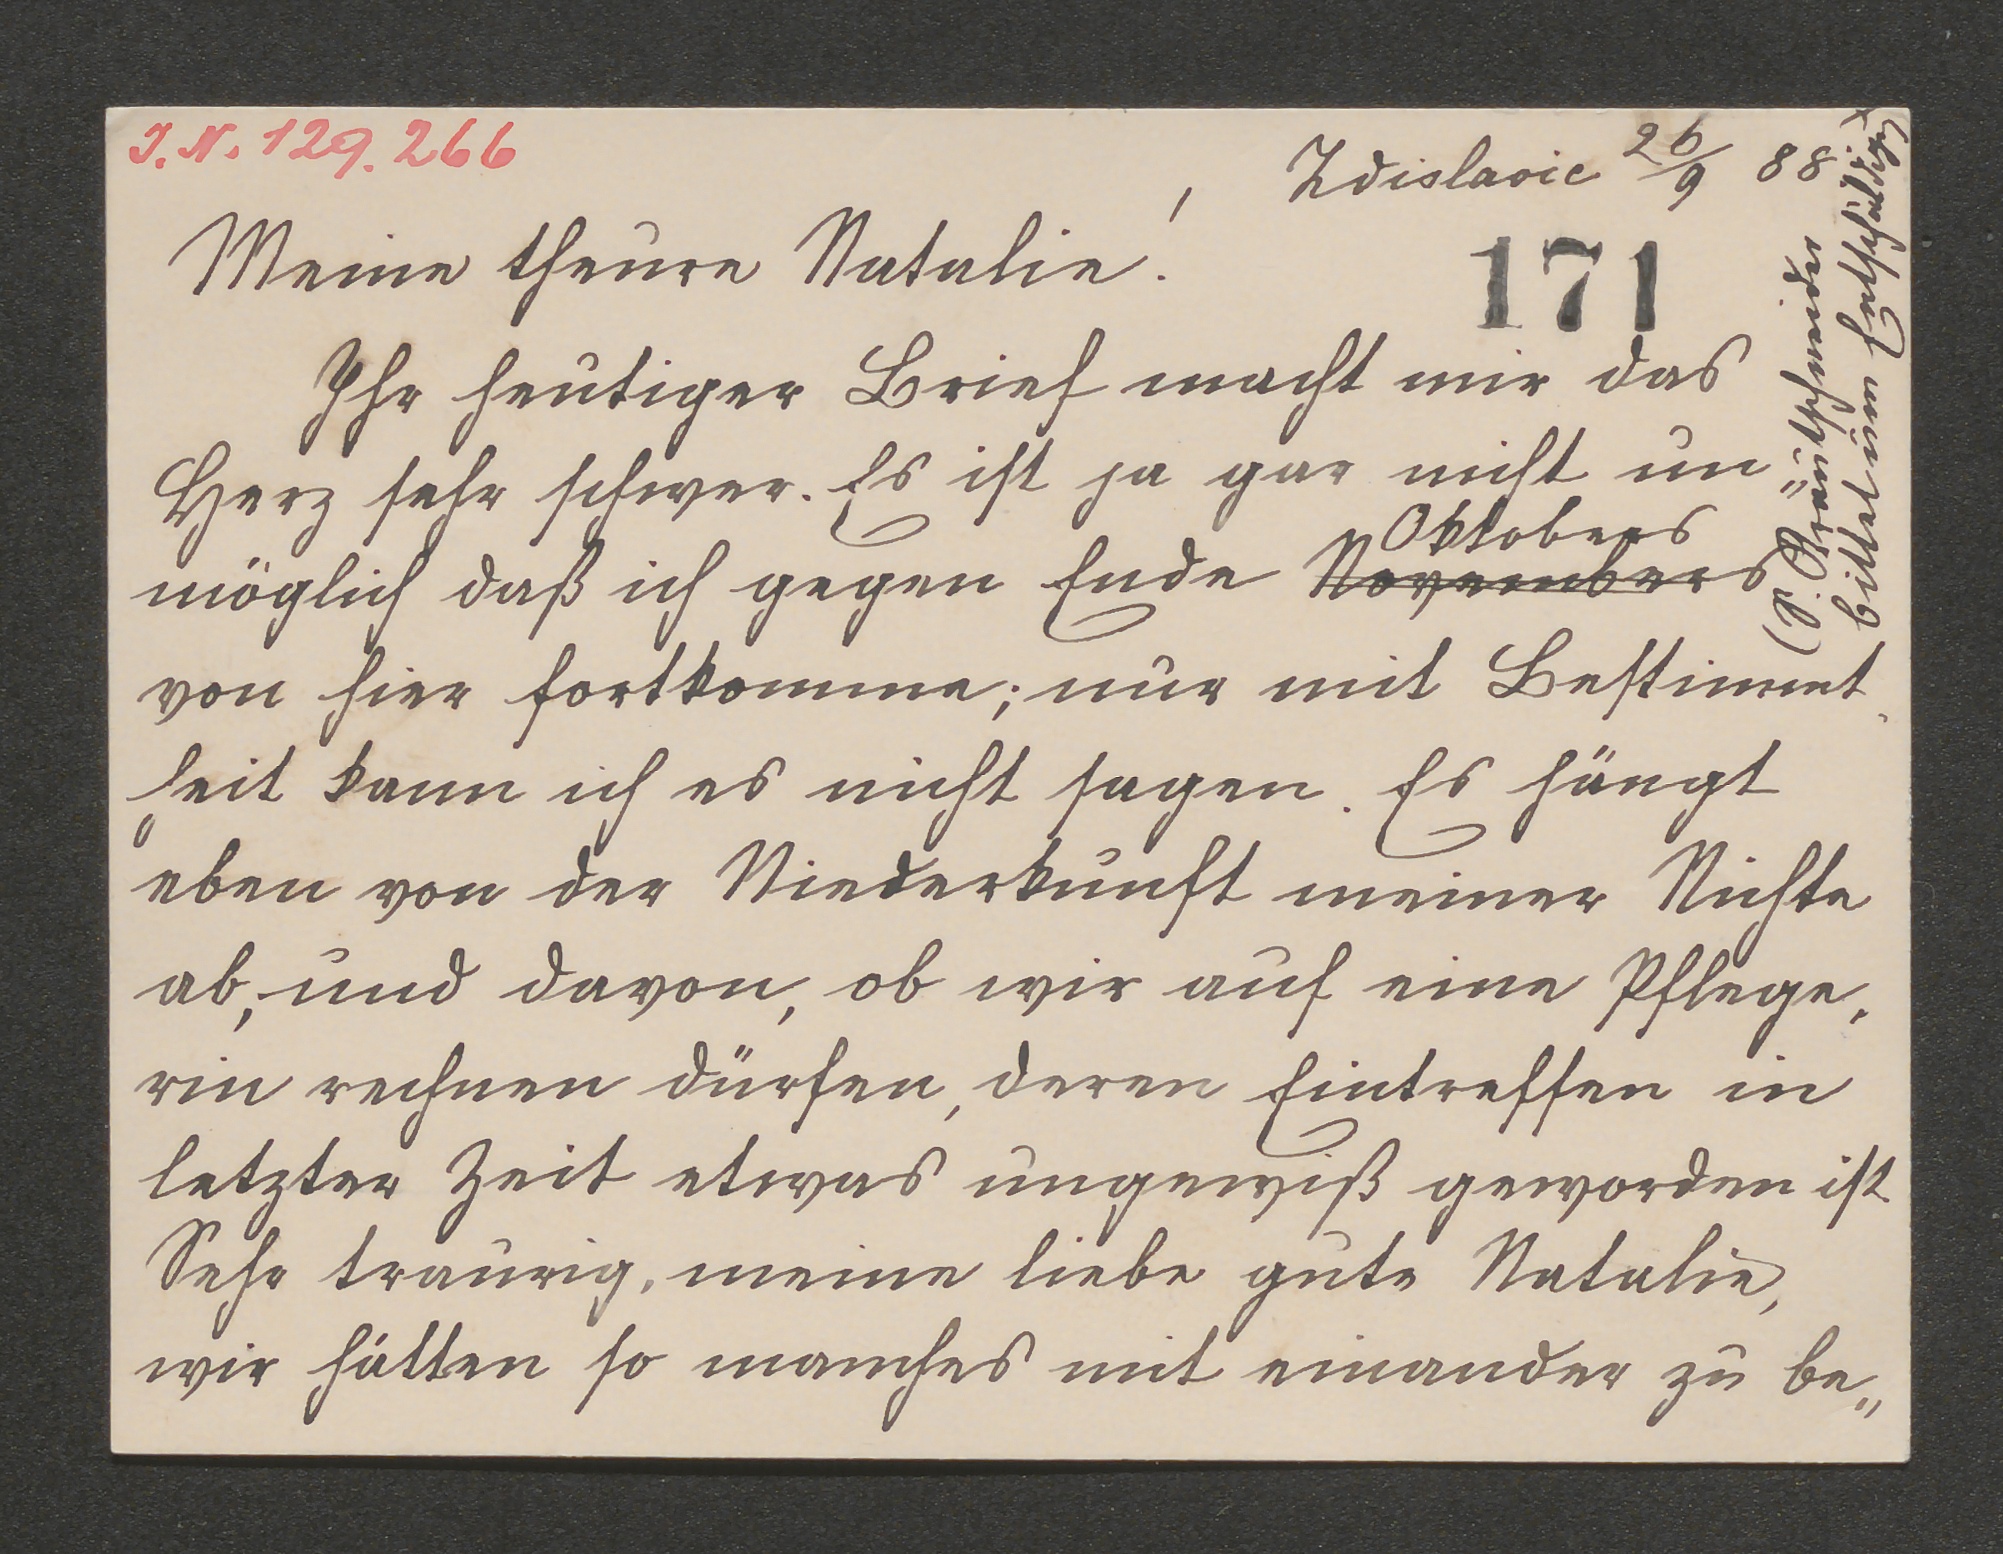 I. N. 129.266
Zdislavic 26/9 88
171
Meine theure Natalie!
Ihr heutiger Brief macht mir das
Herz sehr schwer. Es ist ja gar nicht un„
Oktobers
möglich daß ich gegen Ende Novembers
von hier fortkomme; nur mit Bestimmt„
heit kann ich es nicht sagen. Es hängt
eben von der Niederkunft meiner Nichte
ab, und davon, ob wir auf eine Pflege„
rin rechnen dürfen, deren Eintreffen in
letzter Zeit etwas ungewiß geworden ist
Sehr traurig, meine liebe gute Natalie,
wir hätten so manches mit einander zu be„
bittet um Entschuldigg